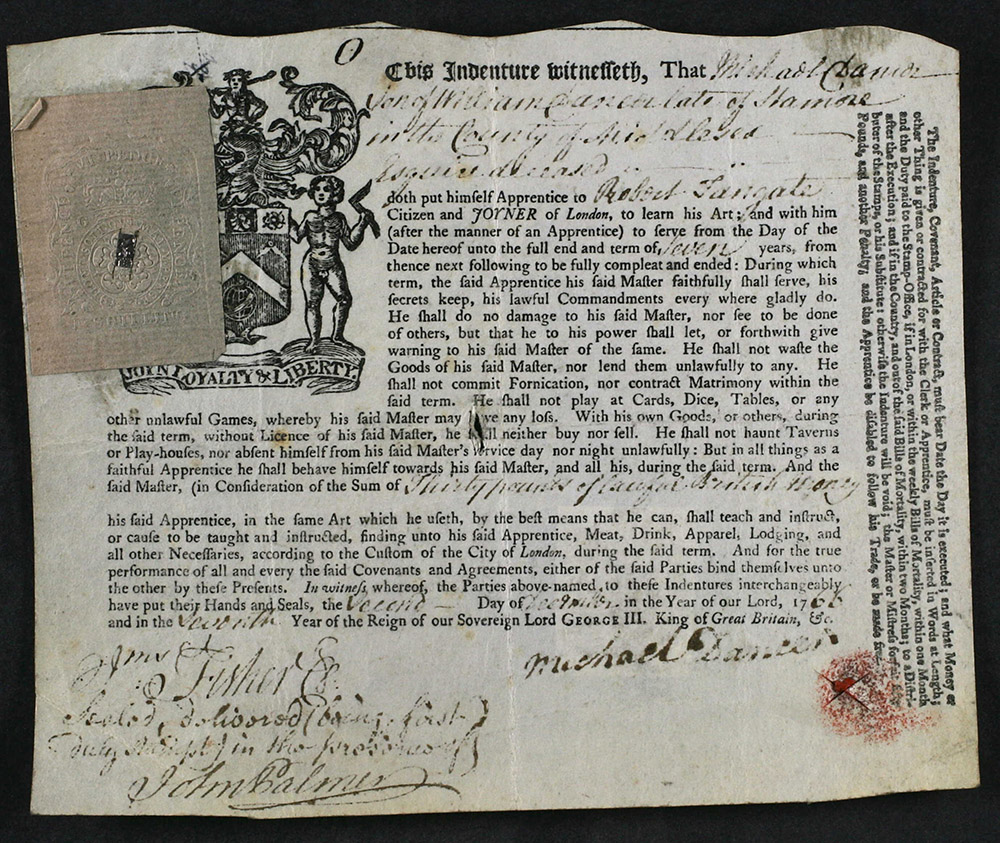 This Indenture witnesseth, That Michael Dancer
Son of William Dancer late of Stanmore
in the County of Middlesex
Esquire deceased
doth put himself Apprentice to Robert Fangate
Citizen and JOYNER of London, to learn his Art; and with him
(after the manner of an Apprentice) to serve from the Day of the
Date hereof unto the full end and term of Seven years, from
thence next following to be fully compleat and ended: During which
term, the said Apprentice his said Master faithfully shall serve, his
secrets keep, his lawful Commandments every where gladly do.
He shall do no damage to his said Master, nor see to be done
of others, but that he to his power shall let, or forthwith give
warning to his said Master of the same. He shall not waste the
Goods of his said Master, nor lend them unlawfully to any. He
shall not commit Fornication, nor contract Matrimony within the
said term. He shall not play at Cards, Dice, Tables, or any
other unlawful Games, whereby his said Master may have any loss. With his own Goods, or others, during
the said term, without Licence of his said Master, he shall neither buy nor sell. He shall not haunt Taverns
or Play-houses, nor absent himself from his said Master's service day nor night unlawfully: But in all things as a
faithful Apprentice he shall behave himself towards his said Master, and all his, during the said term. And the
said Master, (in Consideration of the Sum of Thirty pounds of lawful British Money
his said Apprentice, in the same Art which he useth, by the best means that he can, shall teach and instruct,
or cause to be taught and instructed, finding unto his said Apprentice, Meat, Drink, Apparel, Lodging, and
all other Necessaries, according to the Custom of the City of London, during the said term. And for the true
performance of all and every the said Covenants and Agreements, either of the said Parties bind themselves unto
the other by these Presents. In witness whereof, the Parties above-named to these Indentures interchangeably
have put their Hands and Seals, the Second Day of December in the Year of our Lord, 1766
and in the Seventh Year of the Reign of our Sovereign Lord GEORGE III. King of Great Britain, &c.
Michael Dancer
Jms Fisher
Sealed, delivered (being first
duly stampt) in the presence of
John Palmer
JOYN LOYALTY & LIBERTY
The Indenture, Covenant, Article or Contract, must bear Date the Day it is executed; and what Money or
other Thing is given or contracted for with the Clerk or Apprentice, must be inserted in Words at Length;
and the Duty paid to the Stamp-Office, if in London, or within the weekly Bills of Mortality, within one Month
after the Execution; and if in the Country, and out of the said Bills of Mortality, within two Months; to a Distri-
buter of the Stamps, or his Substitute: otherwise the Indenture will be void; the Master or Mistress forfeit
Pounds, and another Penalty, and the Apprentice be disabled to follow his Trade, or be made